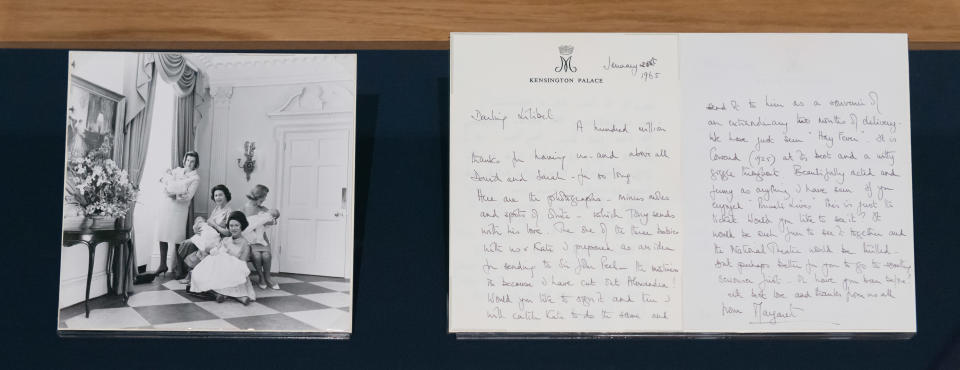 M
KENSINGTON PALACE
January
1965
Darling Lilibet
A hundred million
thanks for having us - and above all
David and Sarah - for so long.
Here are the photographs - minus
and spots of - which Tony sends
with his love. The one of the three babies
with us & Kate I proposed as an idea
for sending to Sir John Peel - the
is because I have cut out Alexandra!
Would you like to sign it and then I
will catch Kate to do the same and
send it to him as a souvenir of
an extraordinary two months of delivery.
We have just seen "Hay Fever". It is
Coward (1925) at his best and a witty
giggle throughout. Beautifully acted and
funny as anything I have seen. If you
enjoyed "Private Lives" this is just the
ticket. Would you like to see it? It
would be such fun to see it together and
the National Theatre would be thrilled -
but perhaps better for you to go to
first - or have you been before?
with best love and thanks from us all
from Margaret